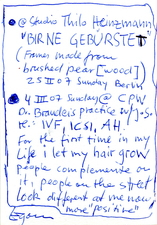 @ Studio Thilo Heinzmann
"BIRNE GEBÜRSTET"
(Frames made from
brushed pear [wood])
25 III 07 Sunday Berlin
4 III 07 Sunday @ CPW
Dr. Brandeis practice w/
re.: WF, ICSI, AH.
For the first time in my
Life i let my hair grow
people complemente on
it, people on the street
look different at me now
more "positive"